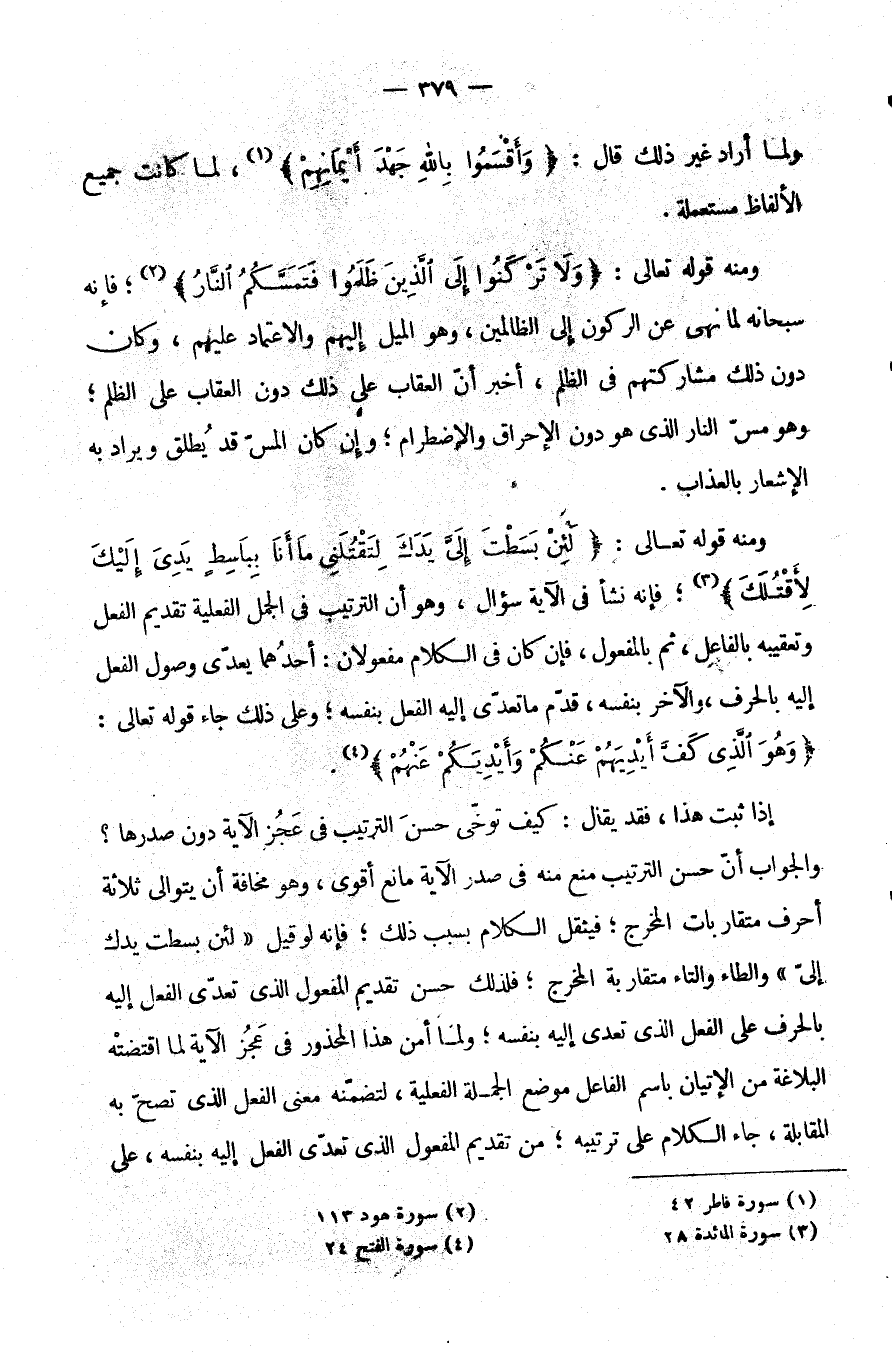 — ٣٧٩ —
ولمـا أراد غير ذلك قال : ﴿ وَأَقْسَمُوا بِاللهِ جَهْدَ أَيْمَانِهِمْ ﴾(١) ، لمـا كانت جميع
الألفاظ مستعملة .
ومنه قوله تعالى : ﴿ وَلَا تَرْكَنُوا إِلَى ٱلَّذِينَ ظَلَمُوا فَتَمَسَّكُمُ ٱلنَّارُ ﴾(٢) ؛ فإنه
سبحانه لما نهى عن الركون إلى الظالمين ، وهو الميل إليهم والاعتماد عليهم ، وكان
دون ذلك مشاركتهم فى الظلم ، أخبر أنّ العقاب على ذلك دون العقاب على الظلم ؛
وهو مسّ النار الذى هو دون الإحراق والإضطرام ؛ وإن كان المسّ قد يُطلق ويراد به
الإشعار بالعذاب .
ومنه قوله تعـالى : ﴿ لَئِنْ بَسَطْتَ إِلَىَّ يَدَكَ لِتَقْتُلَنِى مَا أَنَا بِبَاسِطٍ يَدِىَ إِلَيْكَ
لِأَقْتُلَكَ ﴾(٣) ؛ فإنه نشأ فى الآية سؤال ، وهو أن الترتيب فى الجمل الفعلية تقديم الفعل
وتعقيبه بالفاعل ، ثم بالمفعول ، فإن كان فى الـكلام مفعولان : أحدُهما يعدّى وصول الفعل
إليه بالحرف ، والآخر بنفسه ، قدّم ماتعدّى إليه الفعل بنفسه ؛ وعلى ذلك جاء قوله تعالى :
﴿ وَهُوَ ٱلَّذِى كَفَّ أَيْدِيَهُمْ عَنْكُمْ وَأَيْدِيَكُمْ عَنْهُمْ ﴾(٤) .
إذا ثبت هذا ، فقد يقال : كيف توخّى حسنَ الترتيب فى عَجُز الآية دون صدرها ؟
والجواب أنّ حسن الترتيب منع منه فى صدر الآية مانع أقوى ، وهو مخافة أن يتوالى ثلاثة
أحرف متقاربات المخرج ؛ فيثقل الـكلام بسبب ذلك ؛ فإنه لو قيل « لئن بسطت يدك
إلىّ » والطاء والتاء متقاربة المخرج ؛ فلذلك حسن تقديم المفعول الذى تعدّى الفعل إليه
بالحرف على الفعل الذى تعدى إليه بنفسه ؛ ولمـا أمن هذا المحذور فى عَجُز الآية لما اقتضتْه
البلاغة من الإتيان باسم الفاعل موضع الجمـلة الفعلية ، لتضمّنه معنى الفعل الذى تصحّ به
المقابلة ، جاء الـكلام على ترتيبه ؛ من تقديم المفعول الذى تعدّى الفعل إليه بنفسه ، على
(١) سورة فاطر ٤٢ (٢) سورة هود ١١٣
(٣) سورة المائدة ٢٨ (٤) سورة الفتح ٢٤